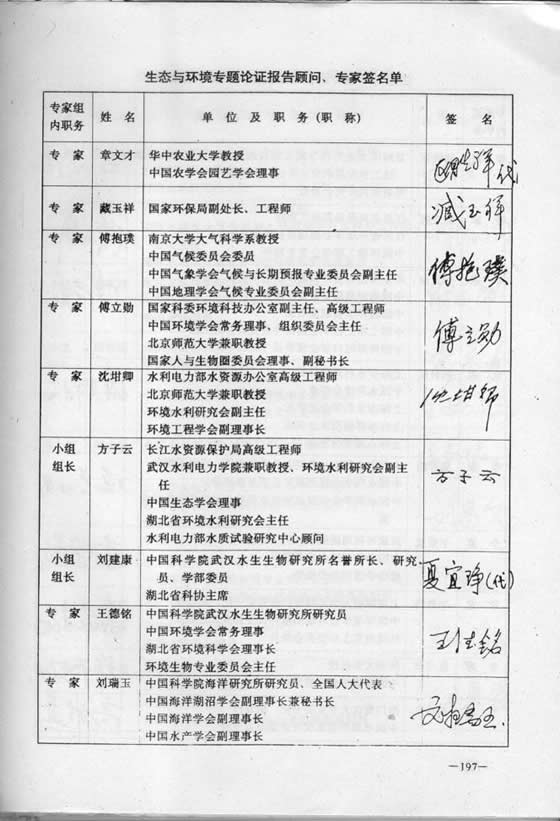 生态与环境专题论证报告顾问、专家签名单
专家组
内职务
姓 名
单 位 及 职 务 (职 称)
签 名
专 家
章文才
华中农业大学教授
中国农学会园艺学会理事
代
专 家
臧玉祥
国家环保局副处长、工程师
臧玉祥
专 家
傅抱璞
南京大学大气科学系教授
中国气候委员会委员
中国气象学会气候与长期预报专业委员会副主任
中国地理学会气候专业委员会副主任
傅抱璞
专 家
傅立勋
国家科委环境科技办公室副主任、高级工程师
中国环境学会常务理事、组织委员会主任
北京师范大学兼职教授
国家人与生物圈委员会理事、副秘书长
傅立勋
专 家
沈坩卿
水利电力部水资源办公室高级工程师
北京师范大学兼职教授
环境水利研究会副主任
环境工程学会副理事长
小组
组长
方子云
长江水资源保护局高级工程师
武汉水利电力学院兼职教授、环境水利研究会副主
任
中国生态学会理事
湖北省环境水利研究会主任
水利电力部水质试验研究中心顾问
方子云
小组
组长
刘建康
中国科学院武汉水生生物研究所名誉所长、研究
员、学部委员
湖北省科协主席
夏宜琤(代)
专 家
王德铭
中国科学院武汉水生生物研究所研究员
中国环境学会常务理事
湖北省环境科学学会理事长
环境生物专业委员会主任
王德铭
专 家
刘瑞玉
中国科学院海洋研究所研究员、全国人大代表
中国海洋湖沼学会副理事长兼秘书长
中国海洋学会副理事长
中国水产学会副理事长
刘瑞玉
—197—